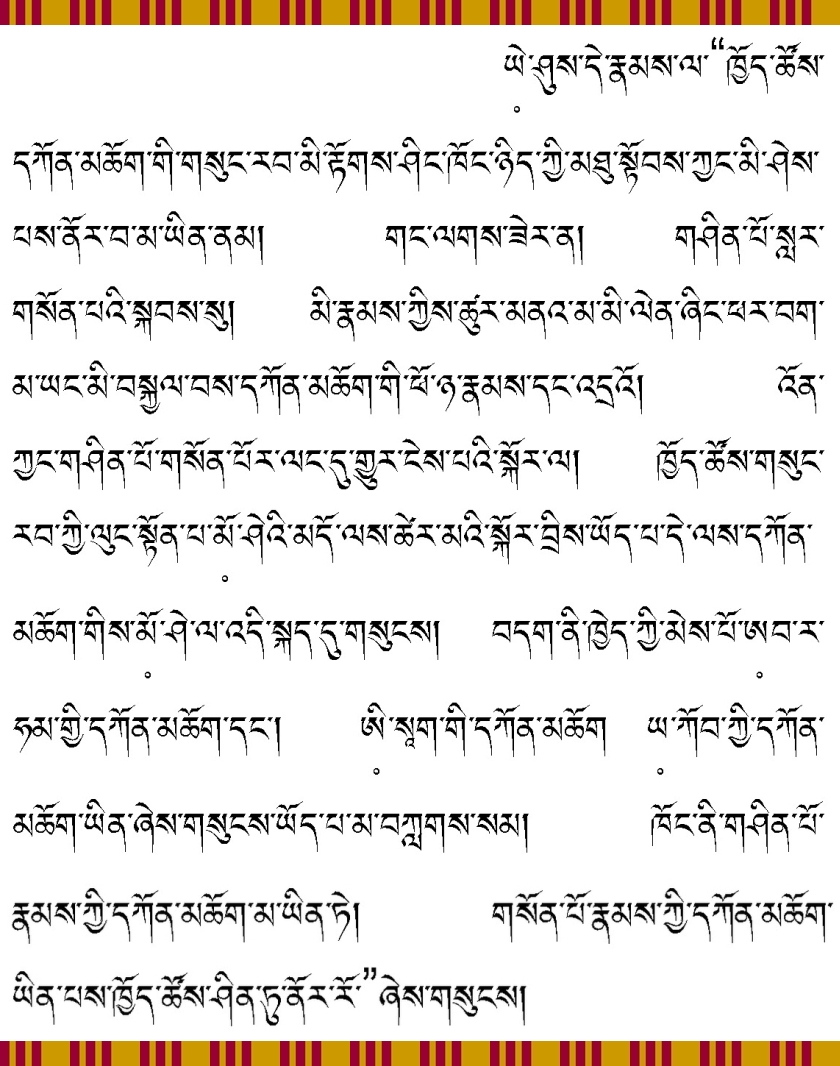 ཡེ་ཤུས་དེ་རྣམས་ལ་“ཁྱོད་ཚོས་
དཀོན་མཆོག་གི་གསུང་རབ་མི་རྟོགས་ཤིང་ཁོང་ཉིད་ཀྱི་མཐུ་སྟོབས་ཀྱང་མི་ཤེས་
པས་ནོར་བ་མ་ཡིན་ནམ། གང་ལགས་ཟེར་ན། གཤིན་པོ་སླར་
གསོན་པའི་སྐབས་སུ། མི་རྣམས་ཀྱིས་ཚུར་མནའ་མ་མི་ལེན་ཞིང་ཕར་བག་
མ་ཡང་མི་བསྐྱལ་བས་དཀོན་མཆོག་གི་ཕོ་ཉ་རྣམས་དང་འདྲའོ། འོན་
ཀྱང་གཤིན་པོ་གསོན་པོར་ལང་དུ་གྱུར་ངེས་པའི་སྐོར་ལ། ཁྱོད་ཚོས་གསུང་
རབ་ཀྱི་ལུང་སྟོན་པ་མོ་ཤེའི་མདོ་ལས་ཚེར་མའི་སྐོར་བྲིས་ཡོད་པ་དེ་ལས་དཀོན་
མཆོག་གིས་མོ་ཤེ་ལ་འདི་སྐད་དུ་གསུངས། བདག་ནི་ཁྱེད་ཀྱི་མེས་པོ་ཨབ་ར་
ཧམ་གྱི་དཀོན་མཆོག་དང་། ཨི་སཱག་གི་དཀོན་མཆོག ཡ་ཀོབ་ཀྱི་དཀོན་
མཆོག་ཡིན་ཞེས་གསུངས་ཡོད་པ་མ་བཀླགས་སམ། ཁོང་ནི་གཤིན་པོ་
རྣམས་ཀྱི་དཀོན་མཆོག་མ་ཡིན་ཏེ། གསོན་པོ་རྣམས་ཀྱི་དཀོན་མཆོག་
ཡིན་པས་ཁྱོད་ཚོས་ཤིན་ཏུ་ནོར་རོ་”ཞེས་གསུངས།